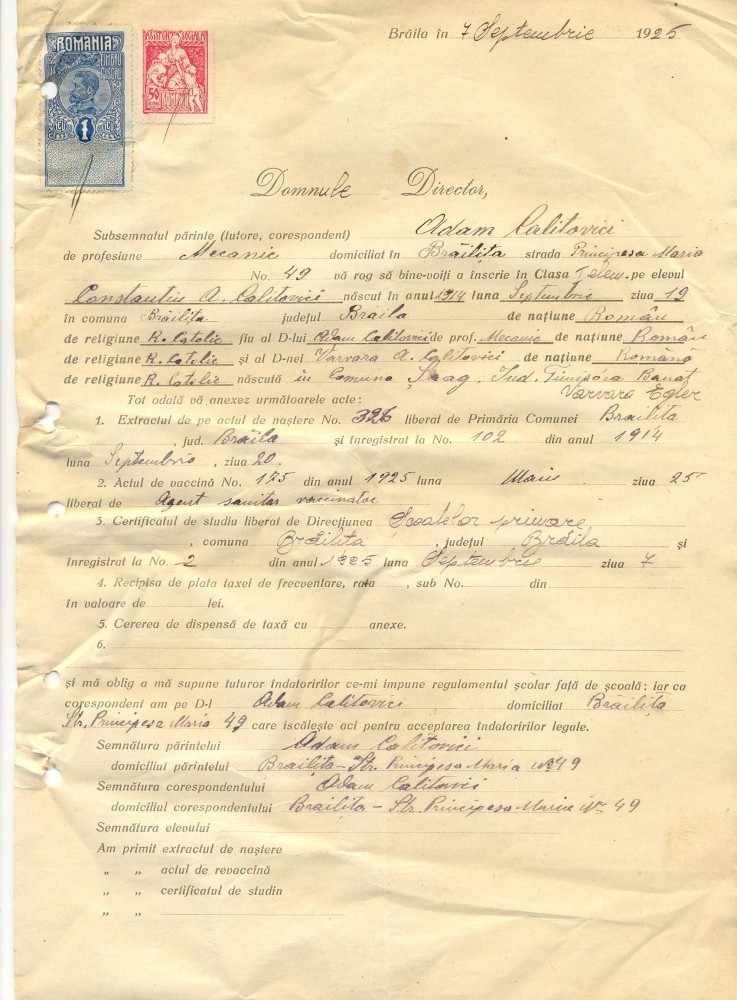 Brăila în 7 Septembrie 1925
ROMANIA
TIMBRU
FISCAL
LEU 1 LEU
ASISTENȚA SOCIALĂ
50
ROMANIA
Domnule Director,
Subsemnatul părinte (tutore, corespondent) Adam Calitovici
de profesiune Mecanic domiciliat în Brăilița strada Principesa Maria
No. 49 vă rog să bine-voiți a înscrie în Clasa pe elevul
Constantin A. Calitovici născut în anul 1914 luna Septembrie ziua 19
în comuna Brăilița județul Braila de națiune Român
de religiune R. Catolic fiu al D-lui Adam Calitovici de prof. Mecanic de națiune Român
de religiune R. Catolic și al D-nei Varvara A. Calitovici de națiune Română
de religiune R. Catolic născută in Comuna Șaag. Jud. Timișora Banat
Tot odată vă anexez următoarele acte : Varvara Egler
1. Extractul de pe actul de naștere No. 326 liberat de Primăria Comunei Brailita
, jud. Brăila și înregistrat la No. 102 din anul 1914
luna Septembrie , ziua 20.
2. Actul de vaccină No 175 din anul 1925 luna ziua 25
liberat de Agent sanitar vaccinator
3. Certificatul de studiu liberat de Direcțiunea Școalelor primare
, comuna Brăilita , județul Brăila și
înregistrat la No. 2 din anul 1925 luna Septembrie ziua 7
4. Recipisa de plata taxei de frecventare, rata , sub No. din
în valoare de lei.
5. Cererea de dispensă de taxă cu anexe.
6.
și mă oblig a mă supune tuturor îndatoririlor ce-mi impune regulamentul școlar față de școală : iar ca
corespondent am pe D-l Adam Calitovici domiciliat Brăilița
Str. Principesa Maria 49 care iscălește aci pentru acceptarea îndatoririlor legale.
Semnătura părintelui Adam Calitovici
domiciliul părintelui Brailița - Str. Principesa Maria No 49
Semnătura corespondentului Adam Calitovici
domiciliul corespondentului Brailița - Str. Principesa Maria No 49
Semnătura elevului
Am primit extractul de naștere
„ „ actul de revaccină
„ „ certificatul de studin
„ „